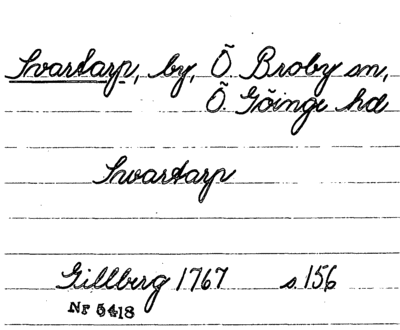 Svartarp, by, Ö. Broby sn,
Ö. Göinge hd
Swartarp
Gillberg 1767 s.156
Nr 5418